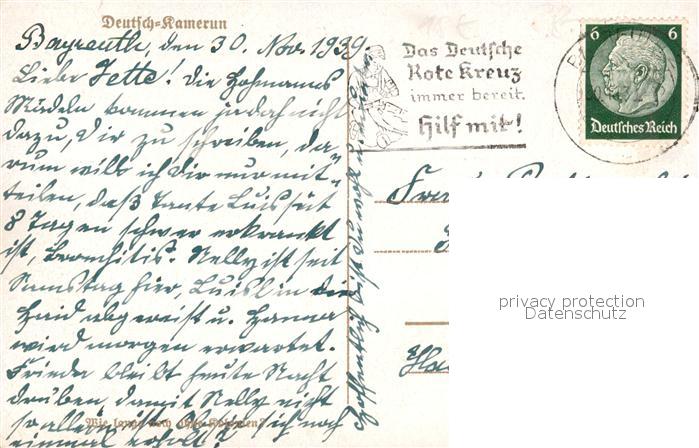 Deutsch-Kamerun
Bayreuth, den 30. Nov. 1939.
Liebe Jette! Die Hofmanns
Mädeln kommen ja doch nicht
dazu, Dir zu schreiben, da-
rum will ich Dir nur mit-
teilen, daß Tante Luis seit
8 Tagen schwer erkrankt
ist, Bronchitis. Nelly ist seit
Samstag hier, Luisl in die
Haid abgereist u. Hanna
wird morgen erwartet.
Frieda bleibt heute Nacht
drüben damit Nelly nicht
so allein ist. Ob sie sich noch
einmal erholt?
Hoffentlich bist Du wohl u.
Wie lange noch ohne Kolonien?
Das Deutsche
Rote Kreuz
immer bereit.
Hilf mit!
6 6
Deutsches Reich
privacy protection
Datenschutz